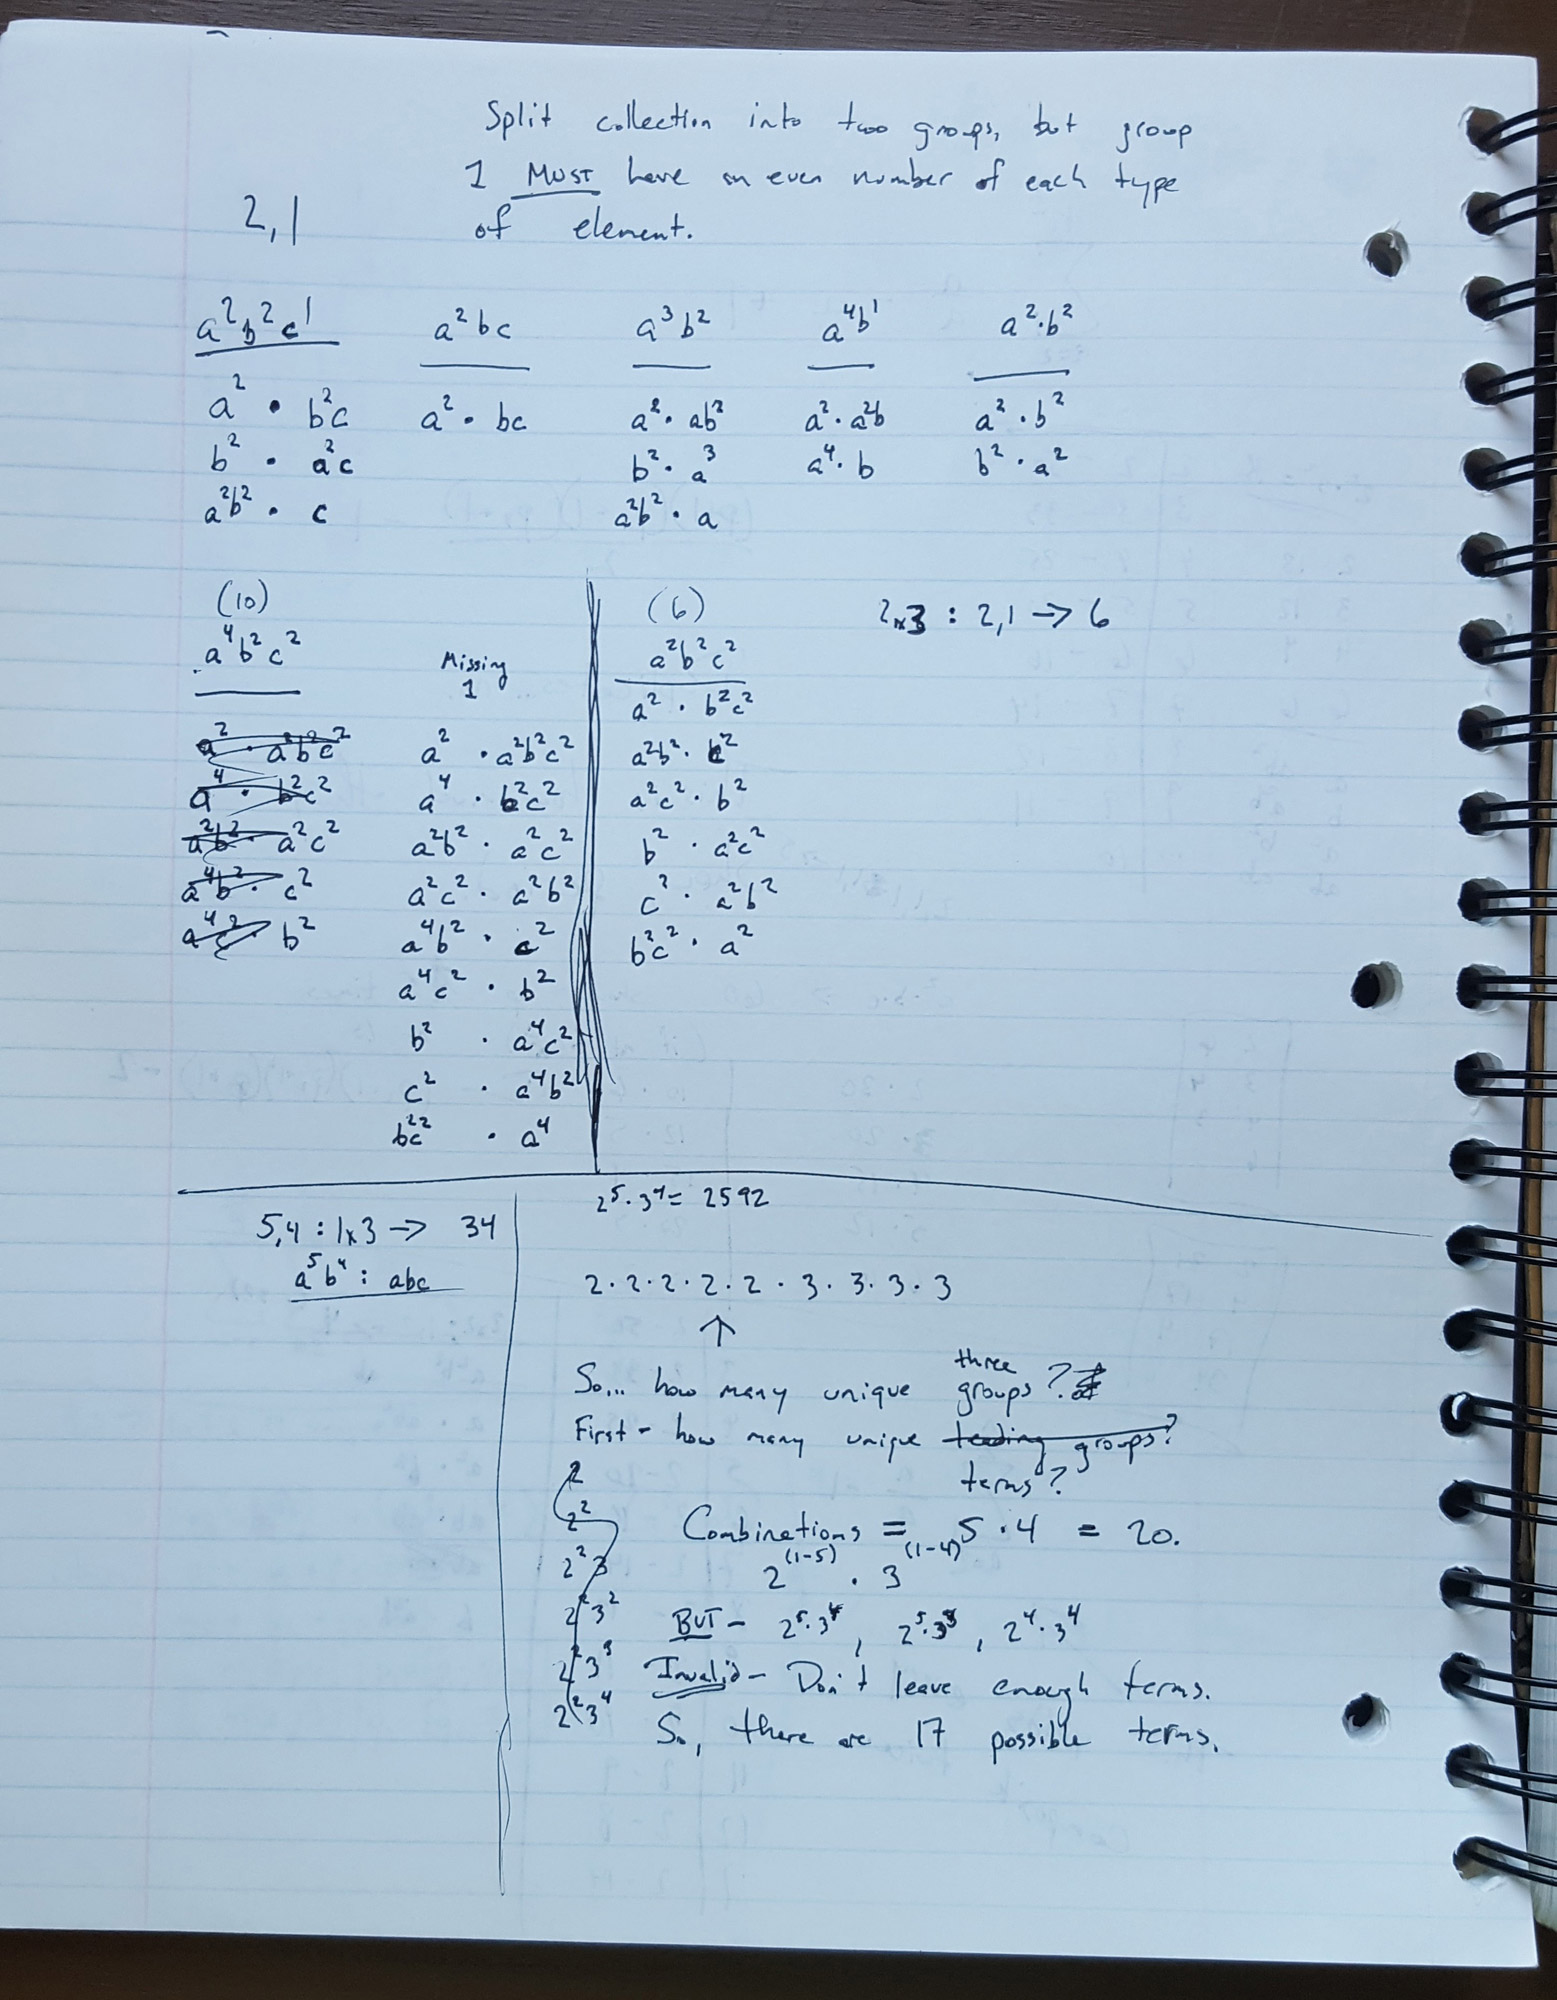 Split collection into two groups, but group
1 MUST have an even number of each type
of element.
2,1
a²b²c¹
a² • b²c
b² • a²c
a²b² • c
a²bc
a² • bc
a³b²
a² • ab²
b² • a³
a²b² • a
a⁴b¹
a² • a²b
a⁴ • b
a²•b²
a² • b²
b² • a²
(10)
a⁴b²c²
a² • a²b²c²
a⁴ • b²c²
a²b² • a²c²
a⁴b² • c²
a⁴c² • b²
Missing
1
a² • a²b²c²
a⁴ • b²c²
a²b² • a²c²
a²c² • a²b²
a⁴b² • c²
a⁴c² • b²
b² • a⁴c²
c² • a⁴b²
b²c² • a⁴
(6)
a²b²c²
a² • b²c²
a²b² • c²
a²c² • b²
b² • a²c²
c² • a²b²
b²c² • a²
2x3 : 2,1 → 6
5,4 : 1x3 → 34
a⁵b⁴ : abc
2⁵•3⁴ = 2592
2•2•2•2•2•3•3•3•3
↑
So... how many unique three groups?
First - how many unique leading groups?
terms?
2
2²
2²3
2²3²
2²3³
2²3⁴
Combinations = 5•4 = 20.
2⁽¹⁻⁵⁾ • 3⁽¹⁻⁴⁾
BUT - 2⁵•3⁴, 2⁵•3³, 2⁴•3⁴
Invalid - Don't leave enough terms.
So, there are 17 possible terms.